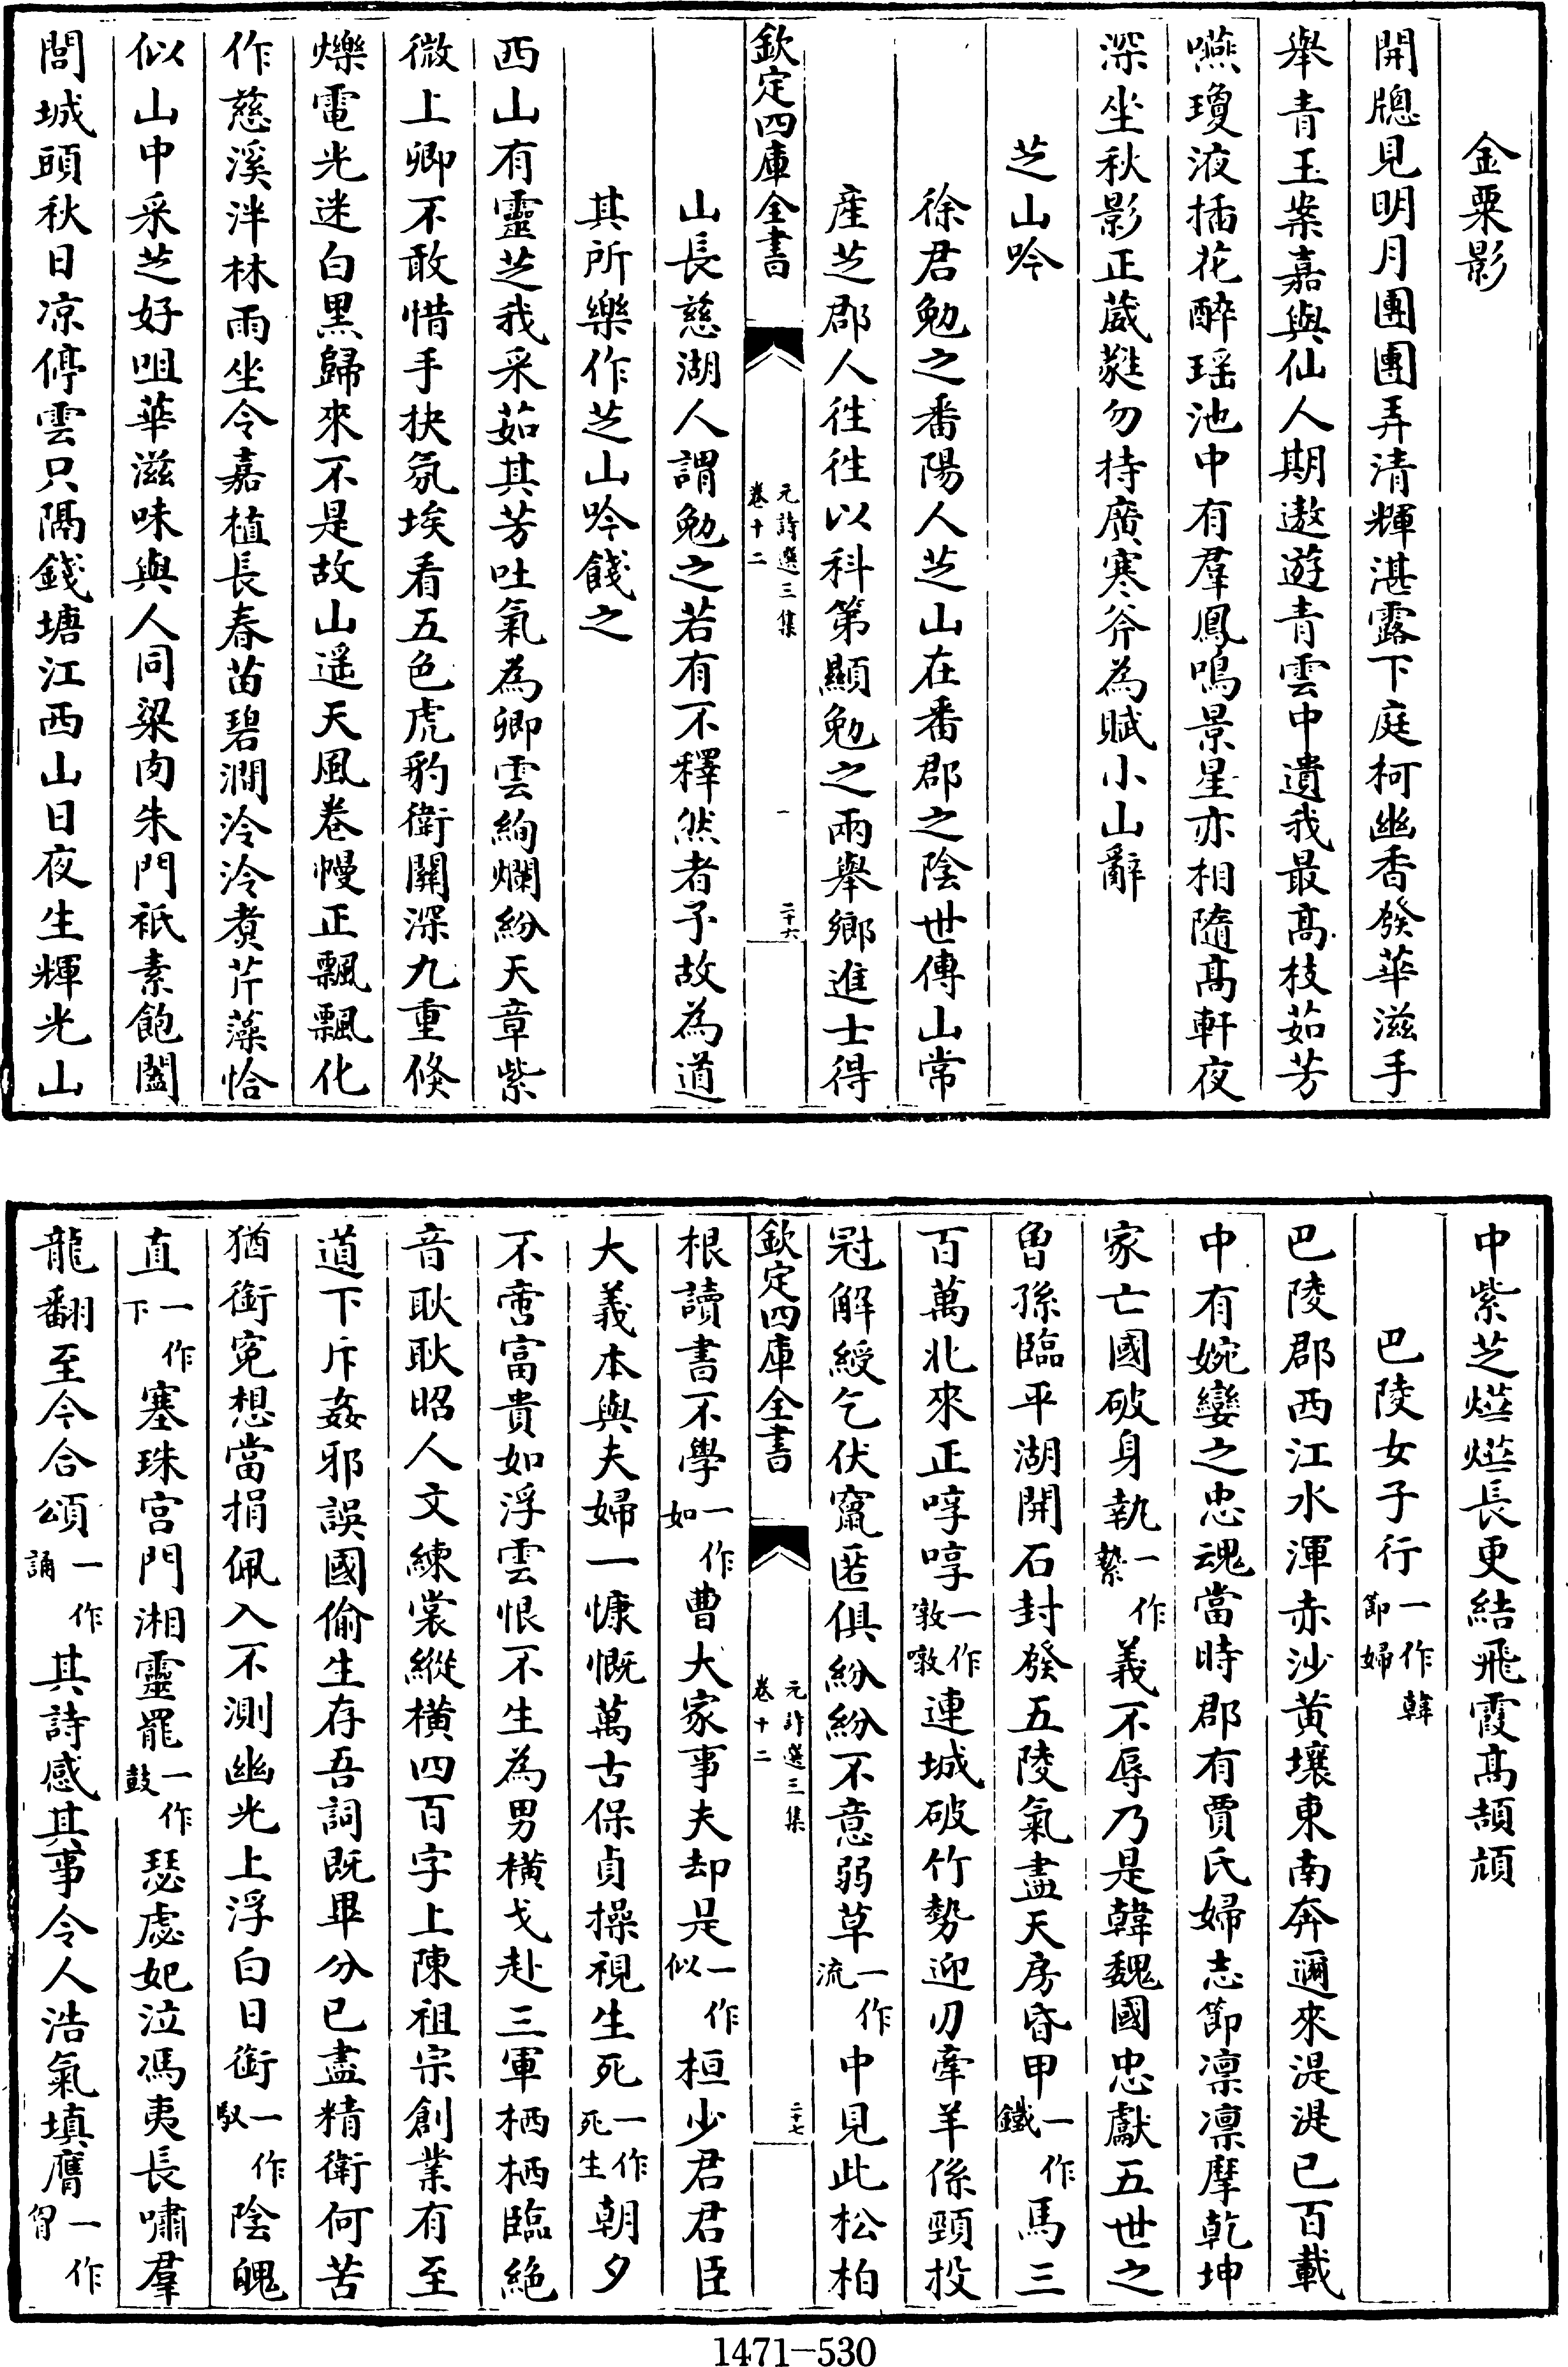 金粟影
開牕見明月團團弄清輝湛露下庭柯幽香發華滋手
舉青玉案嘉與仙人期遨遊青雲中遺我最高枝茹芳
嚥瓊液插花醉瑶池中有羣鳳鳴景星亦相隨高軒夜
深坐秋影正葳蕤勿持廣寒斧為賦小山辭
芝山吟
徐君勉之番陽人芝山在番郡之陰世傳山常
産芝郡人徃徃以科第顯勉之兩舉鄉進士得
欽定四庫全書
元詩選三集
卷十二
二十六
山長慈湖人謂勉之若有不釋然者予故為道
其所樂作芝山吟餞之
西山有靈芝我采茹其芳吐氣為卿雲絢爛紛天章紫
微上卿不敢惜手抉氛埃看五色虎豹衛關深九重倐
爍電光迷白黒歸來不是故山遥天風卷幔正飄飄化
作慈溪泮林雨坐令嘉植長春苗碧澗泠泠煑芹藻恰
似山中采芝好咀華滋味與人同粱肉朱門袛素飽闔
閭城頭秋日凉停雲只隔錢塘江西山日夜生輝光山
中紫芝爗爗長更結飛霞高頡頏
巴陵女子行一作韓節婦
巴陵郡西江水渾赤沙黄壤東南奔邇來湜湜已百載
中有婉孌之忠魂當時郡有賈氏婦志節凛凛摩乾坤
家亡國破身執一作縶義不辱乃是韓魏國忠獻五世之
曾孫臨平湖開石封發五陵氣盡天房昏甲一作鐵馬三
百萬北來正啍啍一作噋噋連城破竹勢迎刃牽羊係頸投
冠解綬乞伏竄匿俱紛紛不意弱草一作流中見此松柏
欽定四庫全書
元詩選三集
卷十二
二十七
根讀書不學一作如曹大家事夫却是一作似桓少君君臣
大義本與夫婦一慷慨萬古保貞操視生死一作死生朝夕
不啻富貴如浮雲恨不生為男横戈赴三軍栖栖臨絶
音耿耿昭人文練裳縱横四百字上陳祖宗創業有至
道下斥姦邪誤國偷生存吾詞既畢分已盡精衛何苦
猶銜寃想當捐佩入不測幽光上浮白日銜一作馭陰魄
直一作下塞珠宫門湘靈罷一作鼓瑟虙妃泣馮夷長嘯羣
龍翻至今合頌一作誦其詩感其事令人浩氣填膺一作胷
1471-530